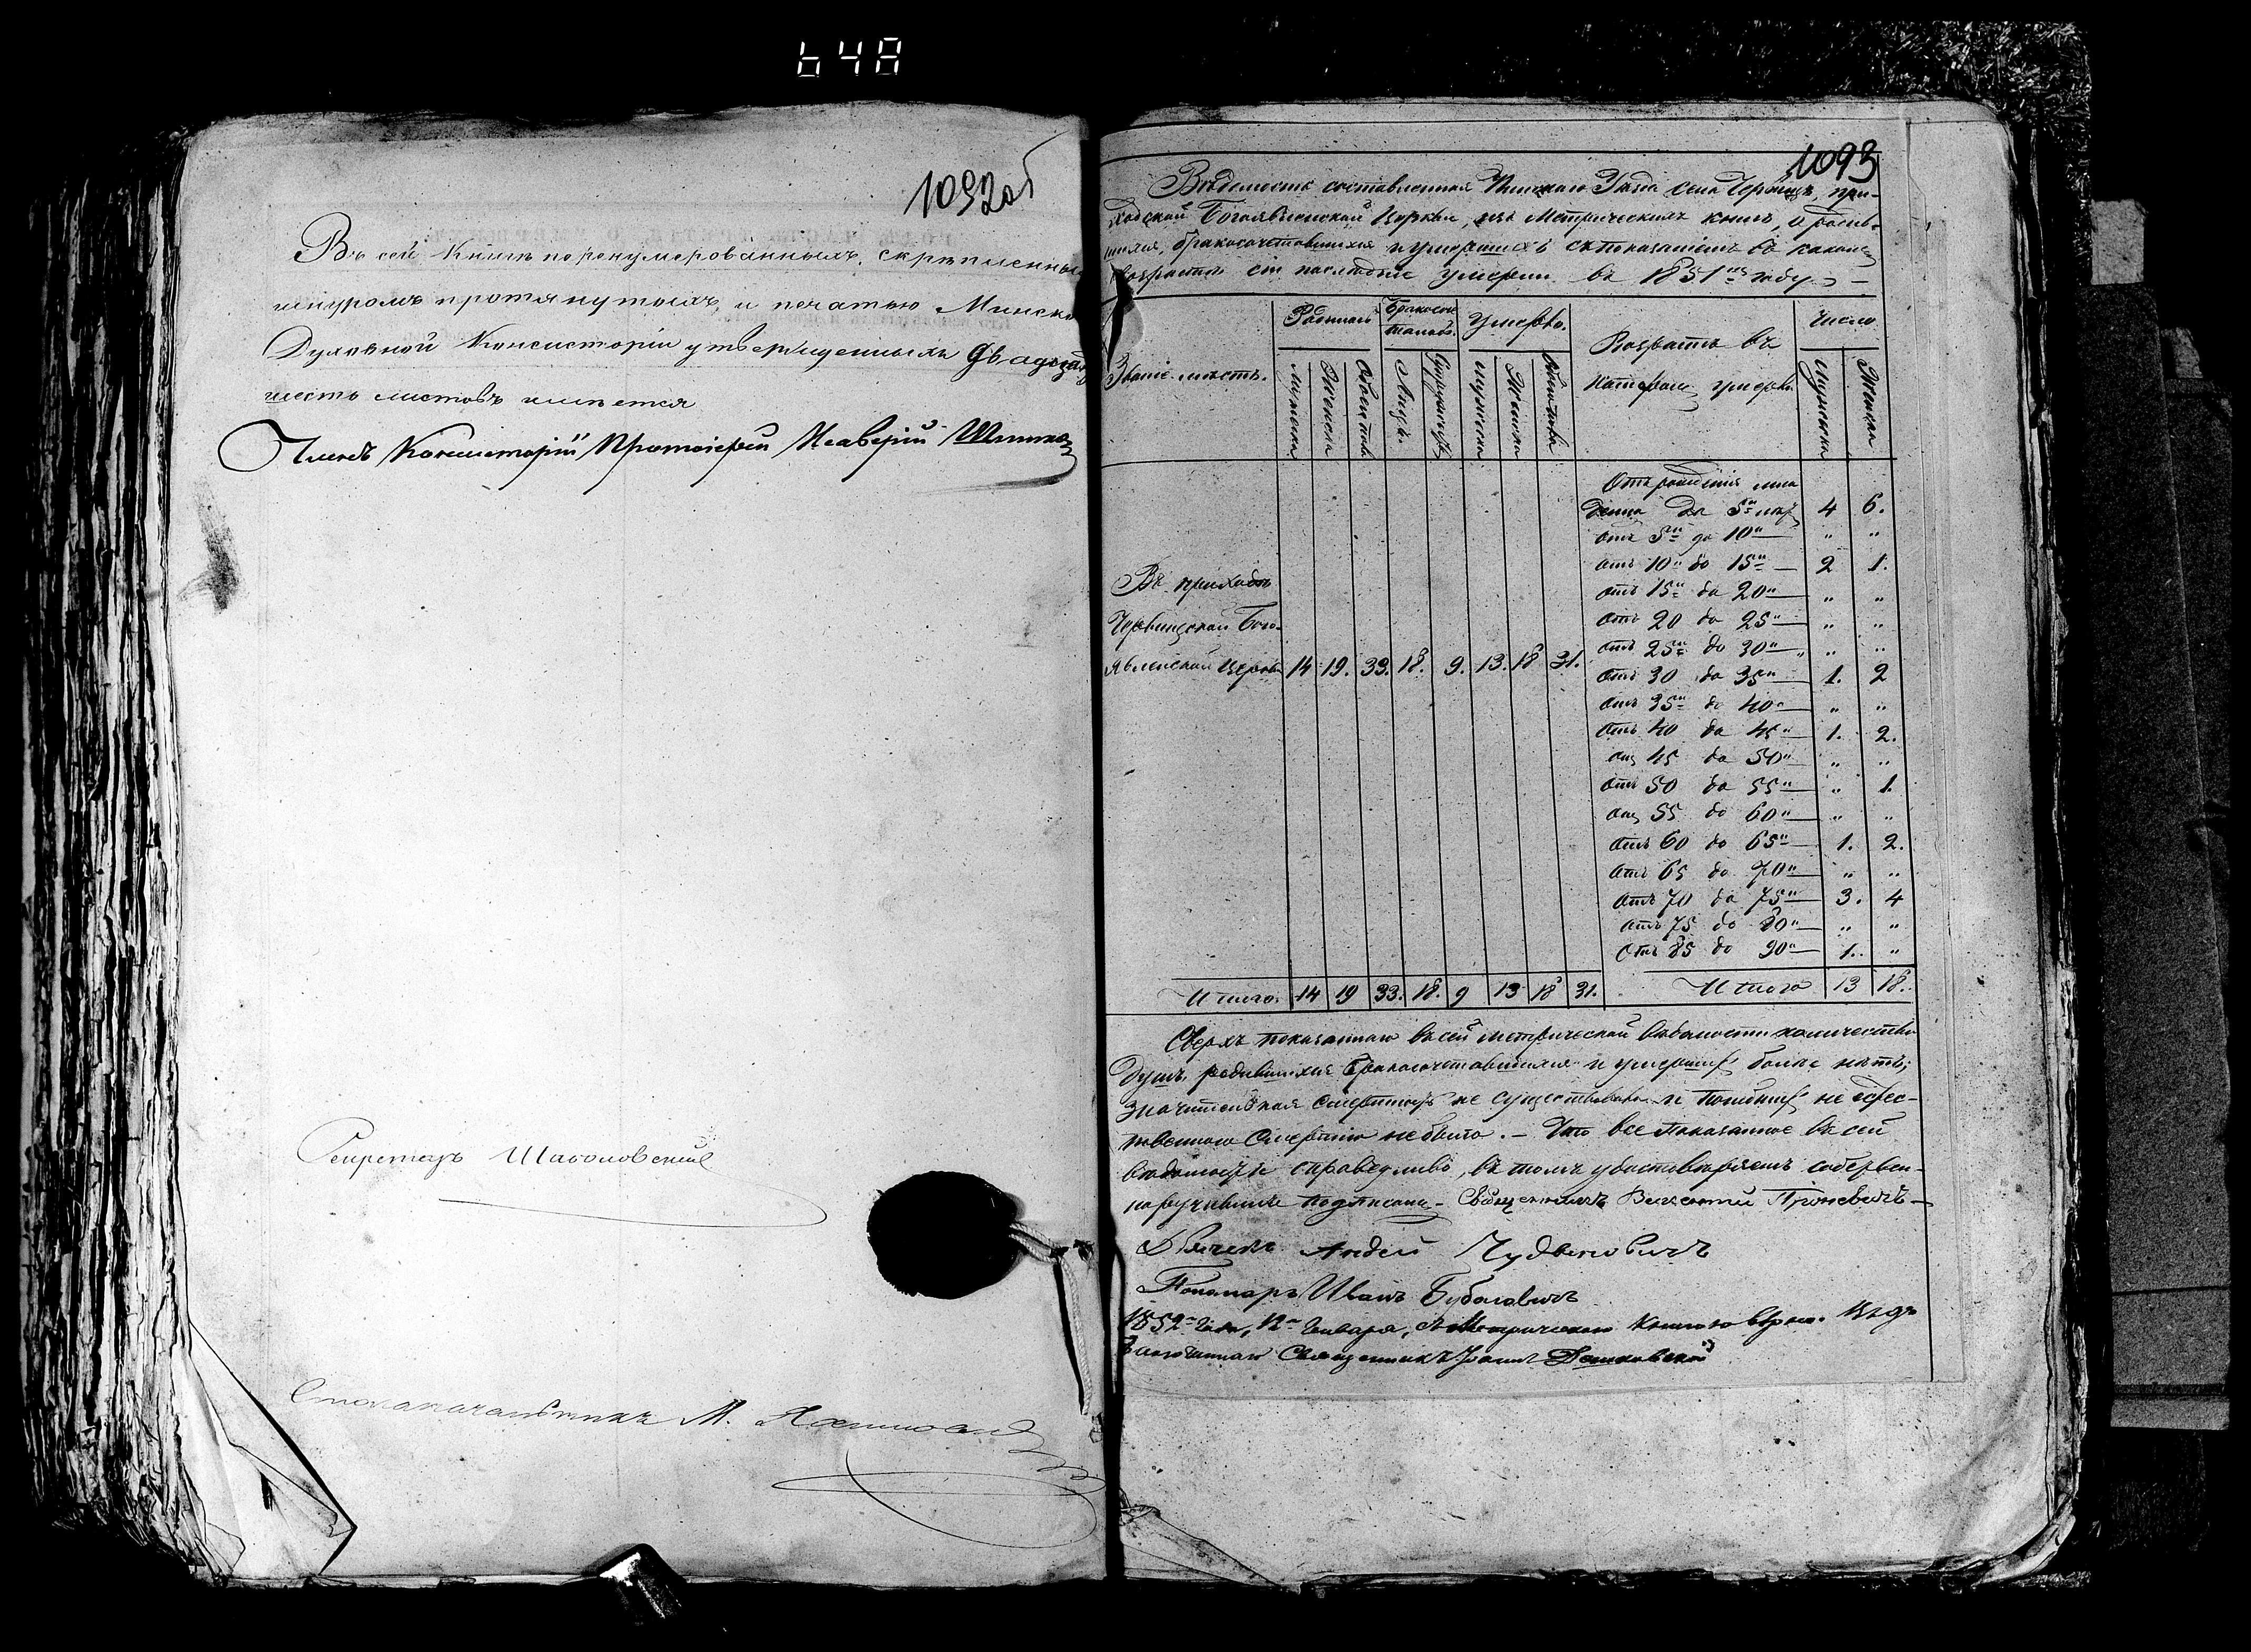 648
1092об
Въ сей Книгѣ перенумерованныхъ, скрѣпленны
шнуромъ протянутыхъ, и печатью Минско
Духовной Консисторіи утвержденныхъ двадцать
шесть листовъ имѣется
Членъ Консисторіи Протоіерей
Секретарь
Столоначальникъ М.
1093
Вѣдомость составленная Пинскаго Уѣзда села, при-
ходской Богоявленской Церкви, изъ Метрическихъ книгъ, о родив-
шихся, бракосочетавшихся и умершихъ съ показаніемъ въ какомъ
возрастѣ сіи послѣдніе умерли въ 1851мъ году
Званіе мѣстъ.
Родилось
Бракосоче
талось.
Умерло.
Возрастъ въ
которомъ умерли
Число
Мужеска
Женска
Обоего пола
Лицъ.
Супружествъ
Мужеска
Женска
Обоего пола
Мужеска
Женска
Въ приходѣ
Червищской Бого-
явленской Церкви 14 19. 33. 18. 9. 13. 18 31.
Отъ рожденія мла
денца до 5ти лѣтъ 4 6.
отъ 5ти до 10и „ „
отъ 10и до 15и 2 1.
отъ 15и до 20и „ „
отъ 20 до 25и „ „
отъ 25ти до 30и „ „
отъ 30 до 35и 1. 2
отъ 35ти до 40а „ „
отъ 40 до 45и 1. 2.
отъ 45 до 50и „ „
отъ 50 до 55и „ 1.
отъ 55 до 60и „ „
отъ 60 до 65и 1. 2.
отъ 65 до 70и „ „
отъ 70 до 75и 3. 4
отъ 75 до 80и „ „
отъ 85 до 90 1. „
Итого. 14 19 33. 18. 9 13 18 31. Итого 13 18.
Сверхъ показаннаго въ сей метрической вѣдомости количества
душъ родившихся бракосочетавшихся и умершихъ болѣе нѣтъ;
значительная смертность не существовала и погибшихъ не естес-
твенною смертію не было. – Что все показанное въ сей
вѣдомости справедливо, въ томъ удостовѣряемъ собствен-
норучнымъ подписомъ – Священникъ Викентій
Дьячекъ Андрей
Пономарь Иванъ
1852го Года, 12го Января, съ Метрическою Книгою вѣрно.
Благочинный Священникъ Іоаннъ